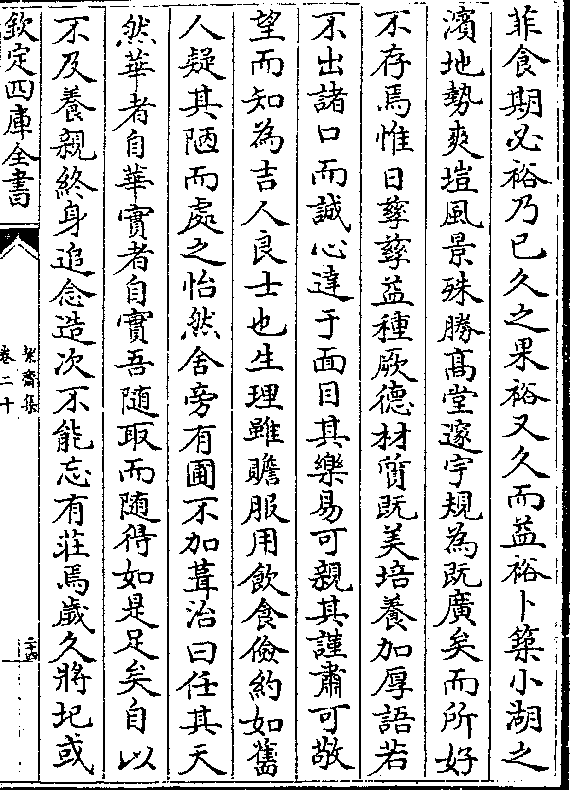 菲食期必裕乃已久之果裕又久而益裕卜築小湖之
濱地勢爽塏風景殊勝髙堂邃宇規為既廣矣而所好
不存焉惟日孳孳益種厥德材質既美培養加厚語若
不出諸口而誠心達于面目其樂易可親其謹肅可敬
望而知為吉人良士也生理雖贍服用飲食儉約如舊
人疑其陋而處之怡然舍旁有圃不加葺治曰任其天
然華者自華實者自實吾随取而随得如是足矣自以
不及養親終身追念造次不能忘有莊焉歲久將圮或
欽定四庫全書
絜齋集
卷二十
二十四